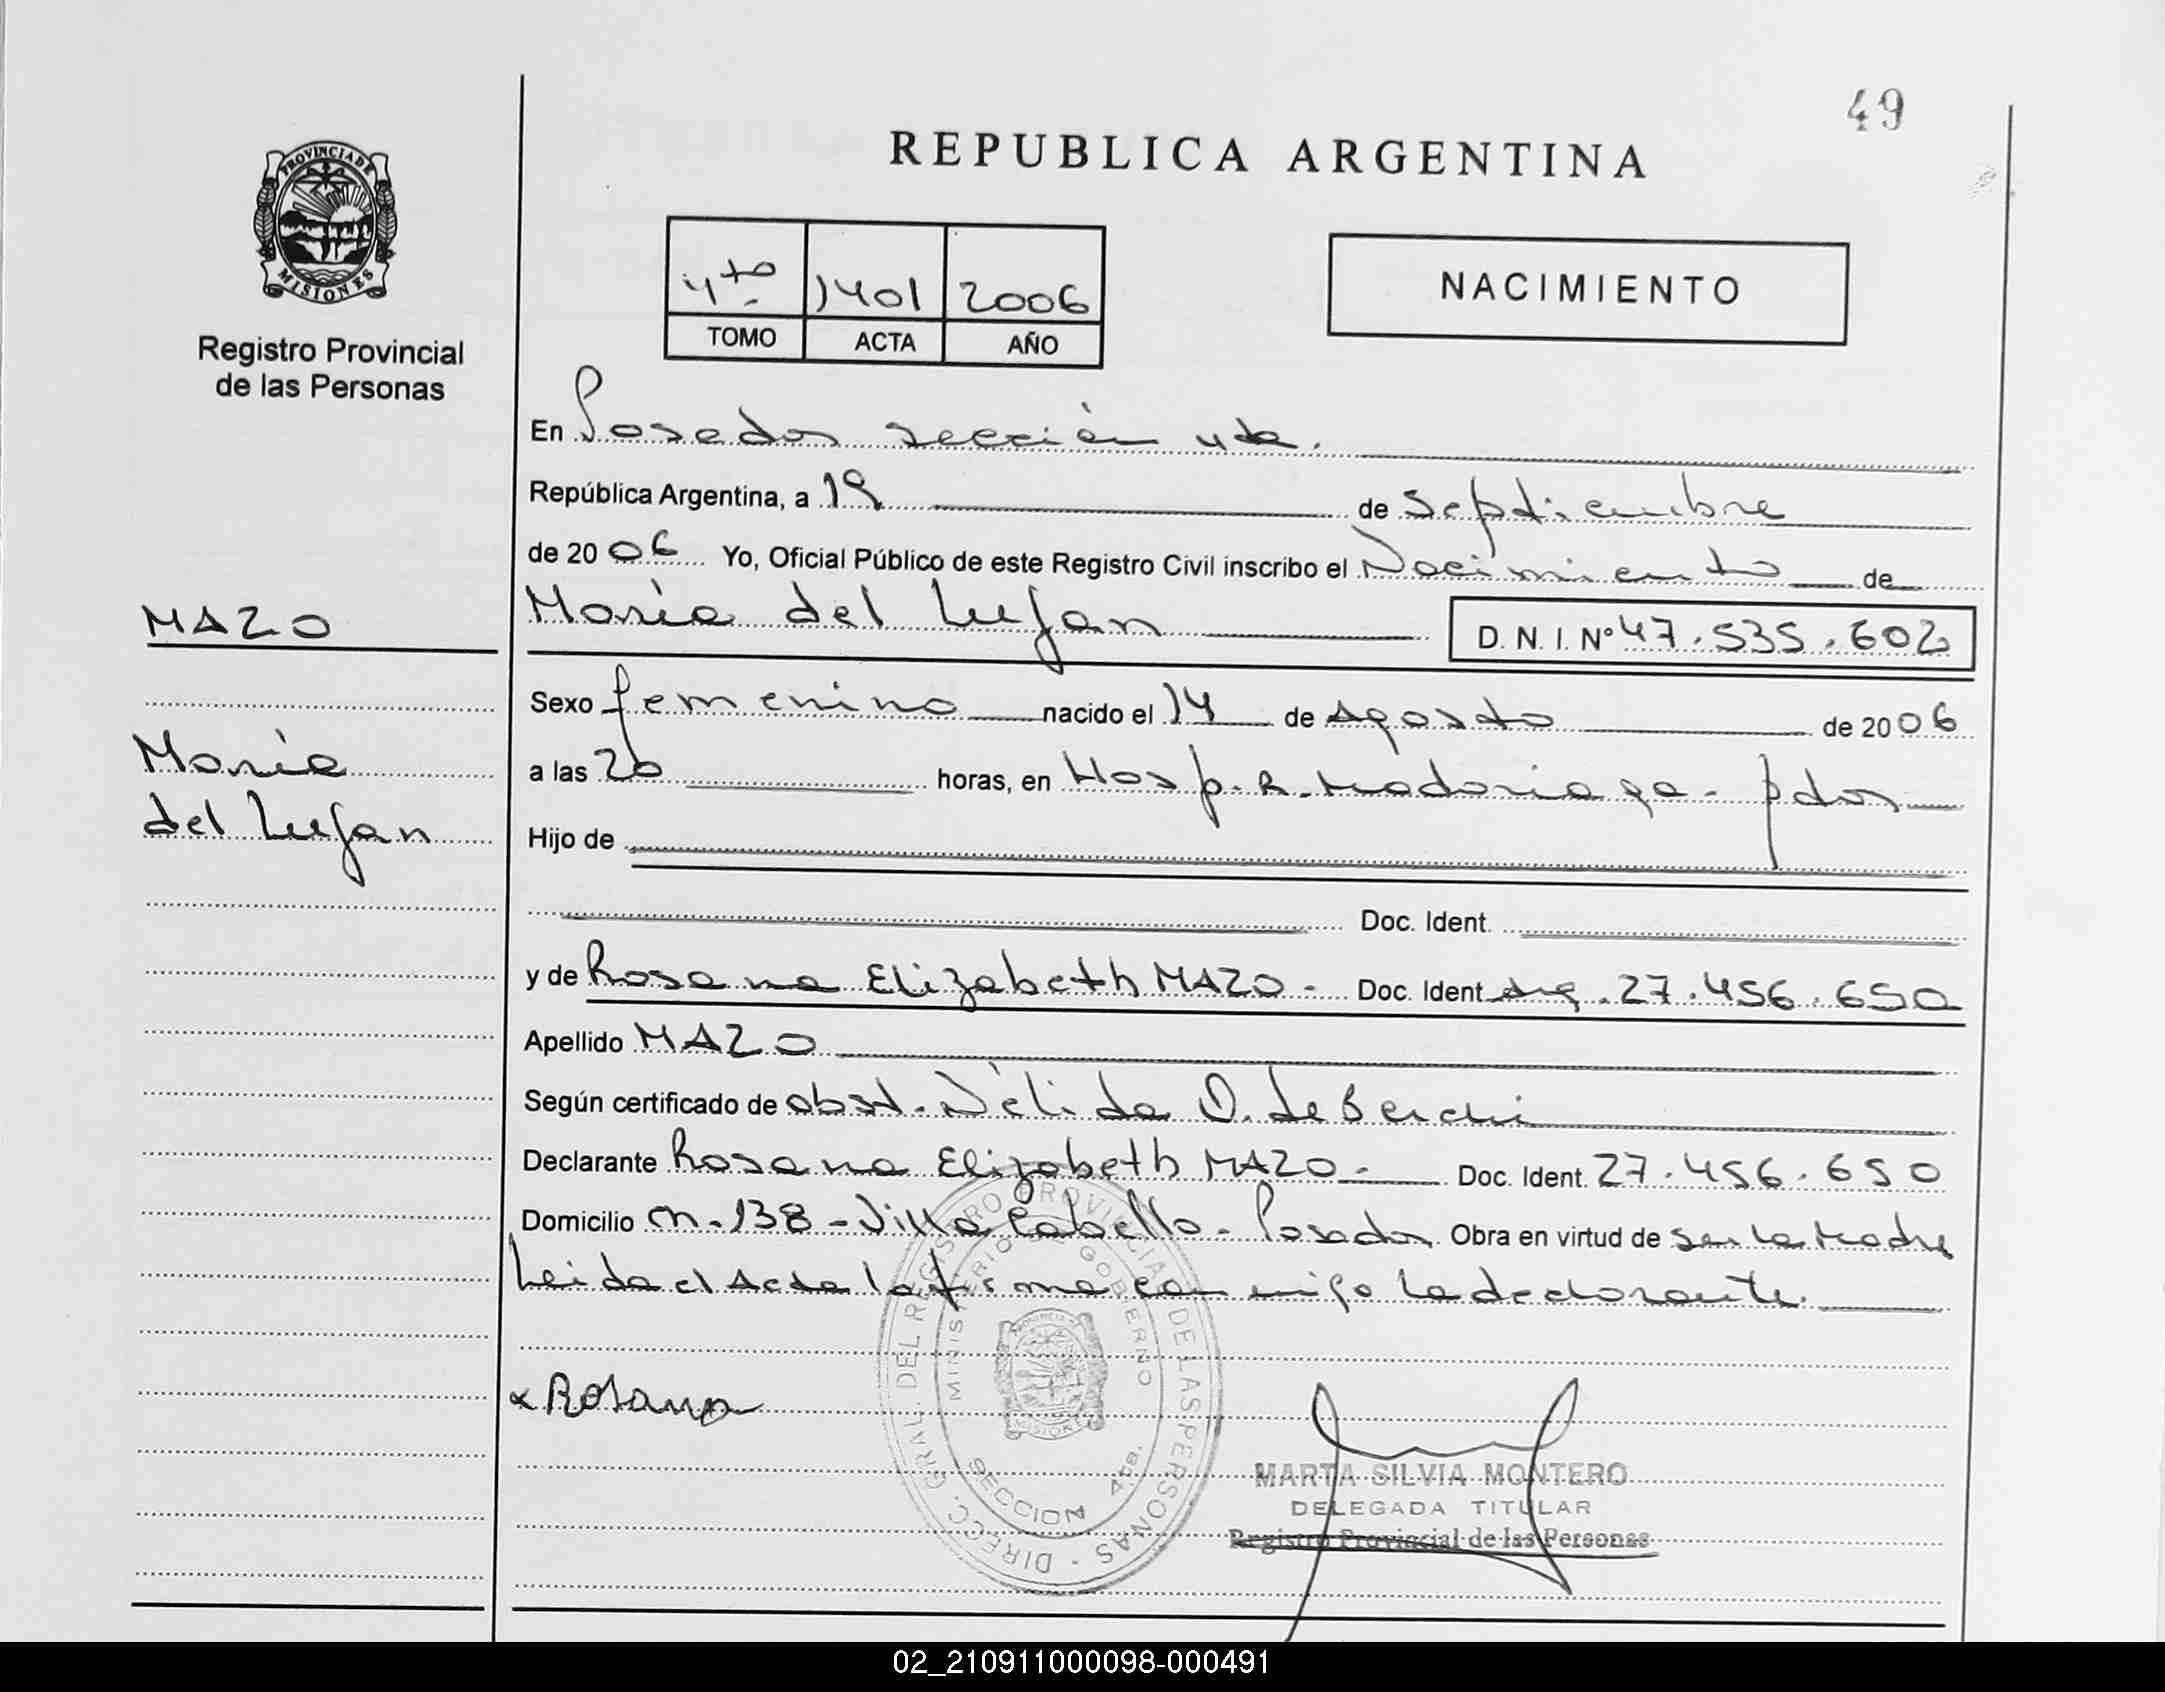 49
REPUBLICA ARGENTINA
PROVINCIA DE
MISIONES
Registro Provincial
de las Personas
4to 1401 2006
TOMO ACTA AÑO
NACIMIENTO
En Posadas sección 4ta.
República Argentina, a 19 de Septiembre
de 2006 Yo, Oficial Público de este Registro Civil inscribo el Nacimiento de
MAZO
María del Lujan D. N. I. Nº 47.535.602
Sexo femenino nacido el 14 de Agosto de 2006
María
del Lujan
a las 20 horas, en Hosp. R. Madariaga - pdas
Hijo de
Doc. Ident.
y de Rosana Elizabeth MAZO - Doc. Ident Arg. 27.456.650
Apellido MAZO
Según certificado de obst. Nélida O. de
Declarante Rosana Elizabeth MAZO - Doc. Ident. 27.456.650
Domicilio Ch. 138 - Villa Cabello - Posadas Obra en virtud de ser la Madre
Leida el Acta la firma con migo la declarante.
DIRECC. GRAL. DEL REGISTRO PROVINCIAL DE LAS PERSONAS -
MINISTERIO DE GOBIERNO
SECCION 4ta.
x Rosana
MARTA SILVIA MONTERO
DELEGADA TITULAR
Registro Provincial de las Personas
02_210911000098-000491